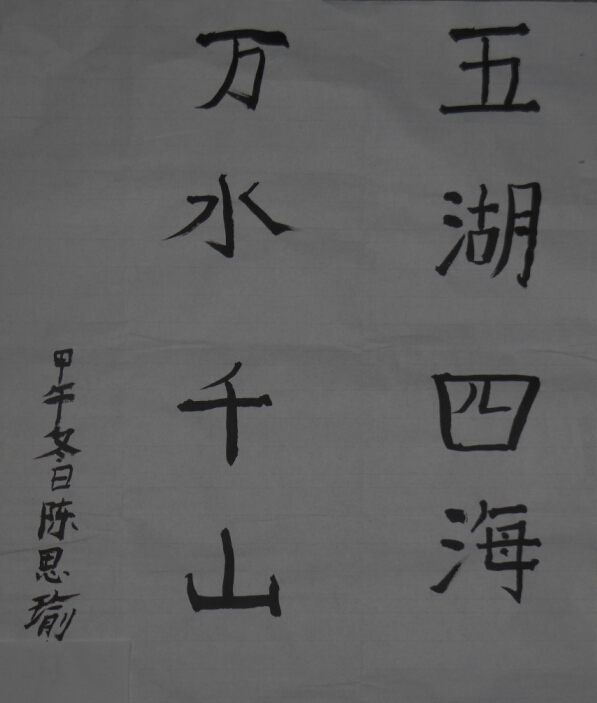 五湖四海
万水千山
甲午冬日陈思瑜